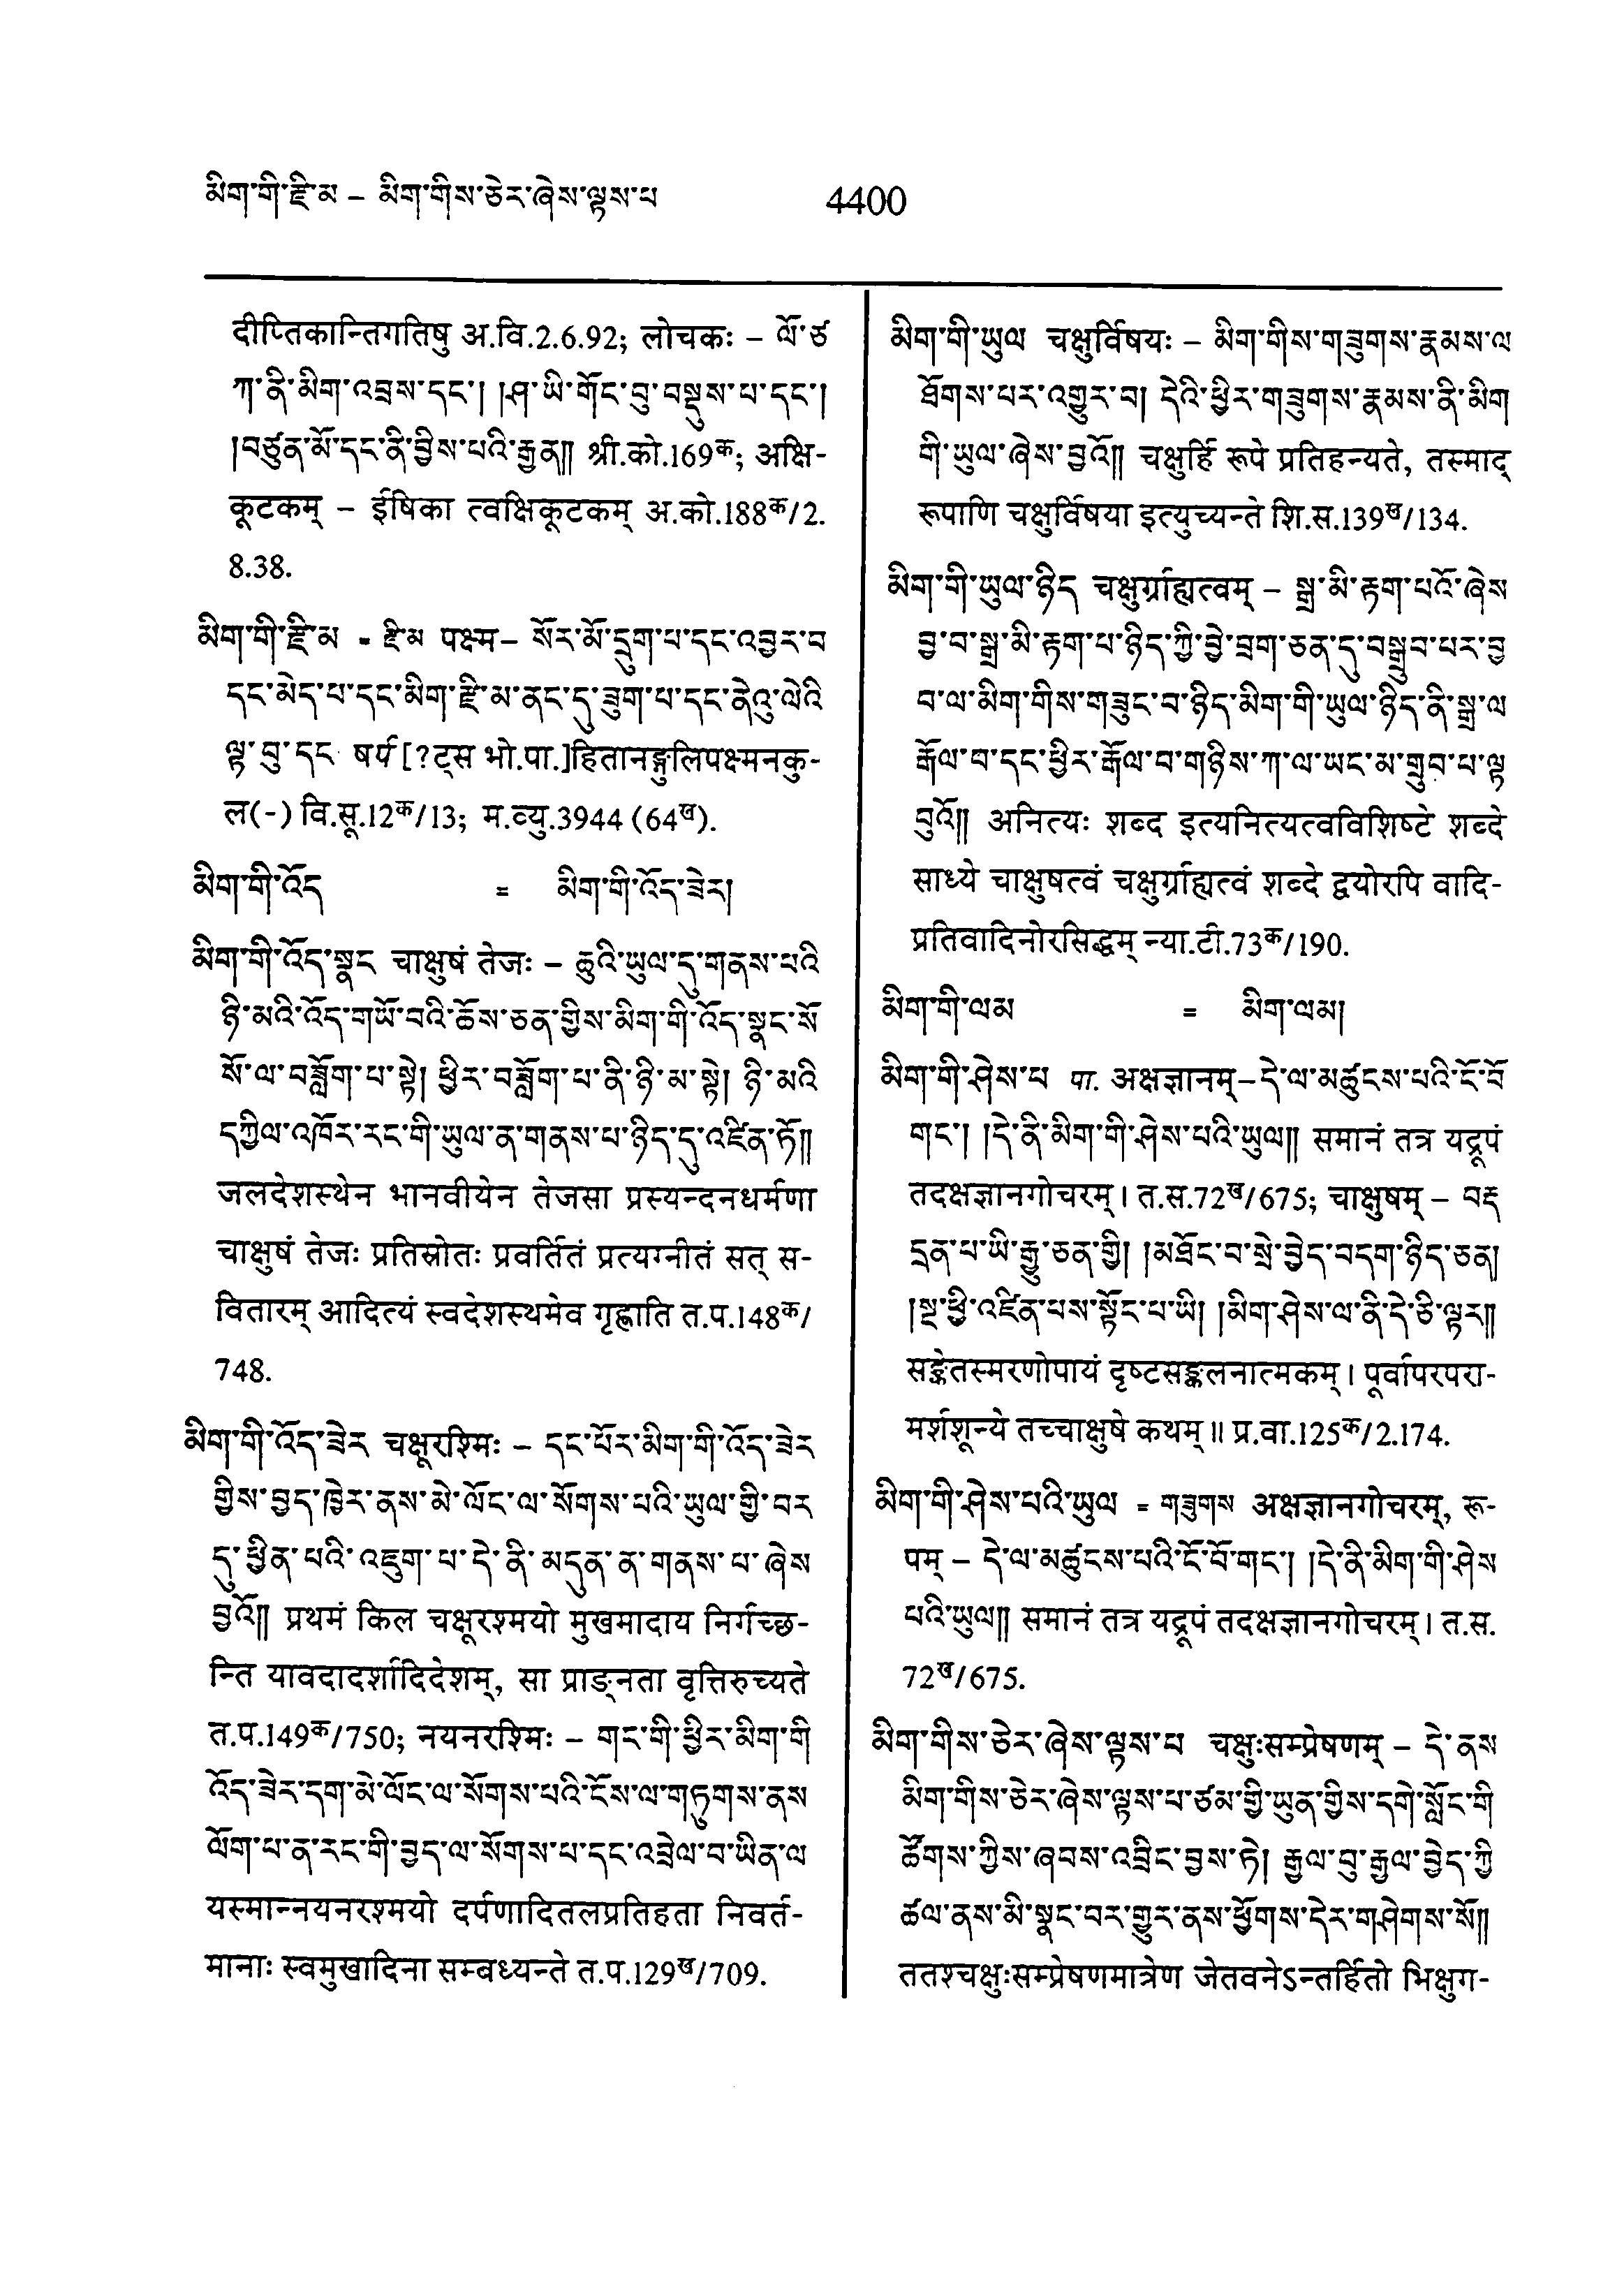 མིག་གི་རྫི་མ – མིག་གིས་ཅེར་ཞེས་ལྟས་པ 4400
दीप्तिकान्तिगतिषु अ.वि.2.6.92; लोचकः – ལོ་ཙ
ཀ་ནི་མིག་འབྲས་དང་། །ཤ་ཡི་གོང་བུ་བསྡུས་པ་དང་།
།བཙུན་མོ་དང་ནི་བྱིས་པའི་རྒྱན།། श्री.को.169क; अक्षि-
कूटकम् – ईषिका त्वक्षिकूटकम् अ.को.188क/2.
8.38.
མིག་གི་རྫི་མ = རྫི་མ पक्ष्म– སོར་མོ་དྲུག་པ་དང་འབྱར་བ
དང་མེད་པ་དང་མིག་རྫི་མ་ནང་དུ་ཟུག་པ་དང་ནེའུ་ལེའི
ལྟ་བུ་དང་ षर्प [?ट्स भो.पा.]हितानङ्गुलिपक्ष्मनकु-
ल(-) वि.सू.12क/13; म.व्यु.3944 (64ख).
མིག་གི་འོད = མིག་གི་འོད་ཟེར།
མིག་གི་འོད་སྣང चाक्षुषं तेजः – ཆུའི་ཡུལ་དུ་གནས་པའི
ཉི་མའི་འོད་གཡོ་བའི་ཆོས་ཅན་གྱིས་མིག་གི་འོད་སྣང་སོ
སོ་ལ་བཟློག་པ་སྟེ། ཕྱིར་བཟློག་པ་ནི་ཉི་མ་སྟེ། ཉི་མའི
དཀྱིལ་འཁོར་རང་གི་ཡུལ་ན་གནས་པ་ཉིད་དུ་འཛིན་ཏོ།།
जलदेशस्थेन भानवीयेन तेजसा प्रस्यन्दनधर्मणा
चाक्षुषं तेजः प्रतिस्रोतः प्रवर्तितं प्रत्यग्नीतं सत् स-
वितारम् आदित्यं स्वदेशस्थमेव गृह्णाति त.प.148क/
748.
མིག་གི་འོད་ཟེར चक्षूरश्मिः – དང་པོར་མིག་གི་འོད་ཟེར
གྱིས་བྱད་ཁྱེར་ནས་མེ་ལོང་ལ་སོགས་པའི་ཡུལ་གྱི་བར
དུ་ཕྱིན་པའི་འཇུག་པ་དེ་ནི་མདུན་ན་གནས་པ་ཞེས
བྱའོ།། प्रथमं किल चक्षूरश्मयो मुखमादाय निर्गच्छ-
न्ति यावदादर्शादिदेशम्, सा प्राङ्नता वृत्तिरुच्यते
त.प.149क/750; नयनरश्मिः – གང་གི་ཕྱིར་མིག་གི
འོད་ཟེར་དག་མེ་ལོང་ལ་སོགས་པའི་ངོས་ལ་གཏུགས་ནས
ལོག་པ་ན་རང་གི་བྱད་ལ་སོགས་པ་དང་འབྲེལ་བ་ཡིན་ལ
यस्मान्नयनरश्मयो दर्पणादितलप्रतिहता निवर्त-
मानाः स्वमुखादिना सम्बध्यन्ते त.प.129ख/709.
མིག་གི་ཡུལ चक्षुर्विषयः – མིག་གིས་གཟུགས་རྣམས་ལ
ཐོགས་པར་འགྱུར་བ། དེའི་ཕྱིར་གཟུགས་རྣམས་ནི་མིག
གི་ཡུལ་ཞེས་བྱའོ།། चक्षुर्हि रूपे प्रतिहन्यते, तस्माद्
रूपाणि चक्षुर्विषया इत्युच्यन्ते शि.स.139ख/134.
མིག་གི་ཡུལ་ཉིད चक्षुर्ग्राह्यत्वम् – སྒྲ་མི་རྟག་པའོ་ཞེས
བྱ་བ་སྒྲ་མི་རྟག་པ་ཉིད་ཀྱི་བྱེ་བྲག་ཅན་དུ་བསྒྲུབ་པར་བྱ
བ་ལ་མིག་གིས་གཟུང་བ་ཉིད་མིག་གི་ཡུལ་ཉིད་ནི་སྒྲ་ལ
རྒོལ་བ་དང་ཕྱིར་རྒོལ་བ་གཉིས་ཀ་ལ་ཡང་མ་གྲུབ་པ་ལྟ
བུའོ།། अनित्यः शब्द इत्यनित्यत्वविशिष्टे शब्दे
साध्ये चाक्षुषत्वं चक्षुर्ग्राह्यत्वं शब्दे द्वयोरपि वादि-
प्रतिवादिनोरसिद्धम् न्या.टी.73क/190.
མིག་གི་ལམ = མིག་ལམ།
མིག་གི་ཤེས་པ पा. अक्षज्ञानम्–དེ་ལ་མཚུངས་པའི་ངོ་བོ
གང་། །དེ་ནི་མིག་གི་ཤེས་པའི་ཡུལ།། समानं तत्र यद्रूपं
तदक्षज्ञानगोचरम्। त.स.72ख/675; चाक्षुषम् – བརྡ
དྲན་པ་ཡི་རྒྱུ་ཅན་གྱི། །མཐོང་བ་སྲེ་བྱེད་བདག་ཉིད་ཅན།
།སྔ་ཕྱི་འཛིན་པས་སྟོང་པ་ཡི། །མིག་ཤེས་ལ་ནི་དེ་ཅི་ལྟར།།
सङ्केतस्मरणोपायं दृष्टसङ्कलनात्मकम्। पूर्वापरपरा-
मर्शशून्ये तच्चाक्षुषे कथम्॥ प्र.वा.125क/2.174.
མིག་གི་ཤེས་པའི་ཡུལ = གཟུགས अक्षज्ञानगोचरम्, रू-
पम् – དེ་ལ་མཚུངས་པའི་ངོ་བོ་གང་། །དེ་ནི་མིག་གི་ཤེས
པའི་ཡུལ།། समानं तत्र यद्रूपं तदक्षज्ञानगोचरम्। त.स.
72ख/675.
མིག་གིས་ཅེར་ཞེས་ལྟས་པ चक्षुःसम्प्रेषणम् – དེ་ནས
མིག་གིས་ཅེར་ཞེས་ལྟས་པ་ཙམ་གྱི་ཡུན་གྱིས་དགེ་སློང་གི
ཚོགས་ཀྱིས་ཞབས་འབྲིང་བྱས་ཏེ། རྒྱལ་བུ་རྒྱལ་བྱེད་ཀྱི
ཚལ་ནས་མི་སྣང་བར་གྱུར་ནས་ཕྱོགས་དེར་གཤེགས་སོ།།
ततश्चक्षुःसम्प्रेषणमात्रेण जेतवनेऽन्तर्हितो भिक्षुग-